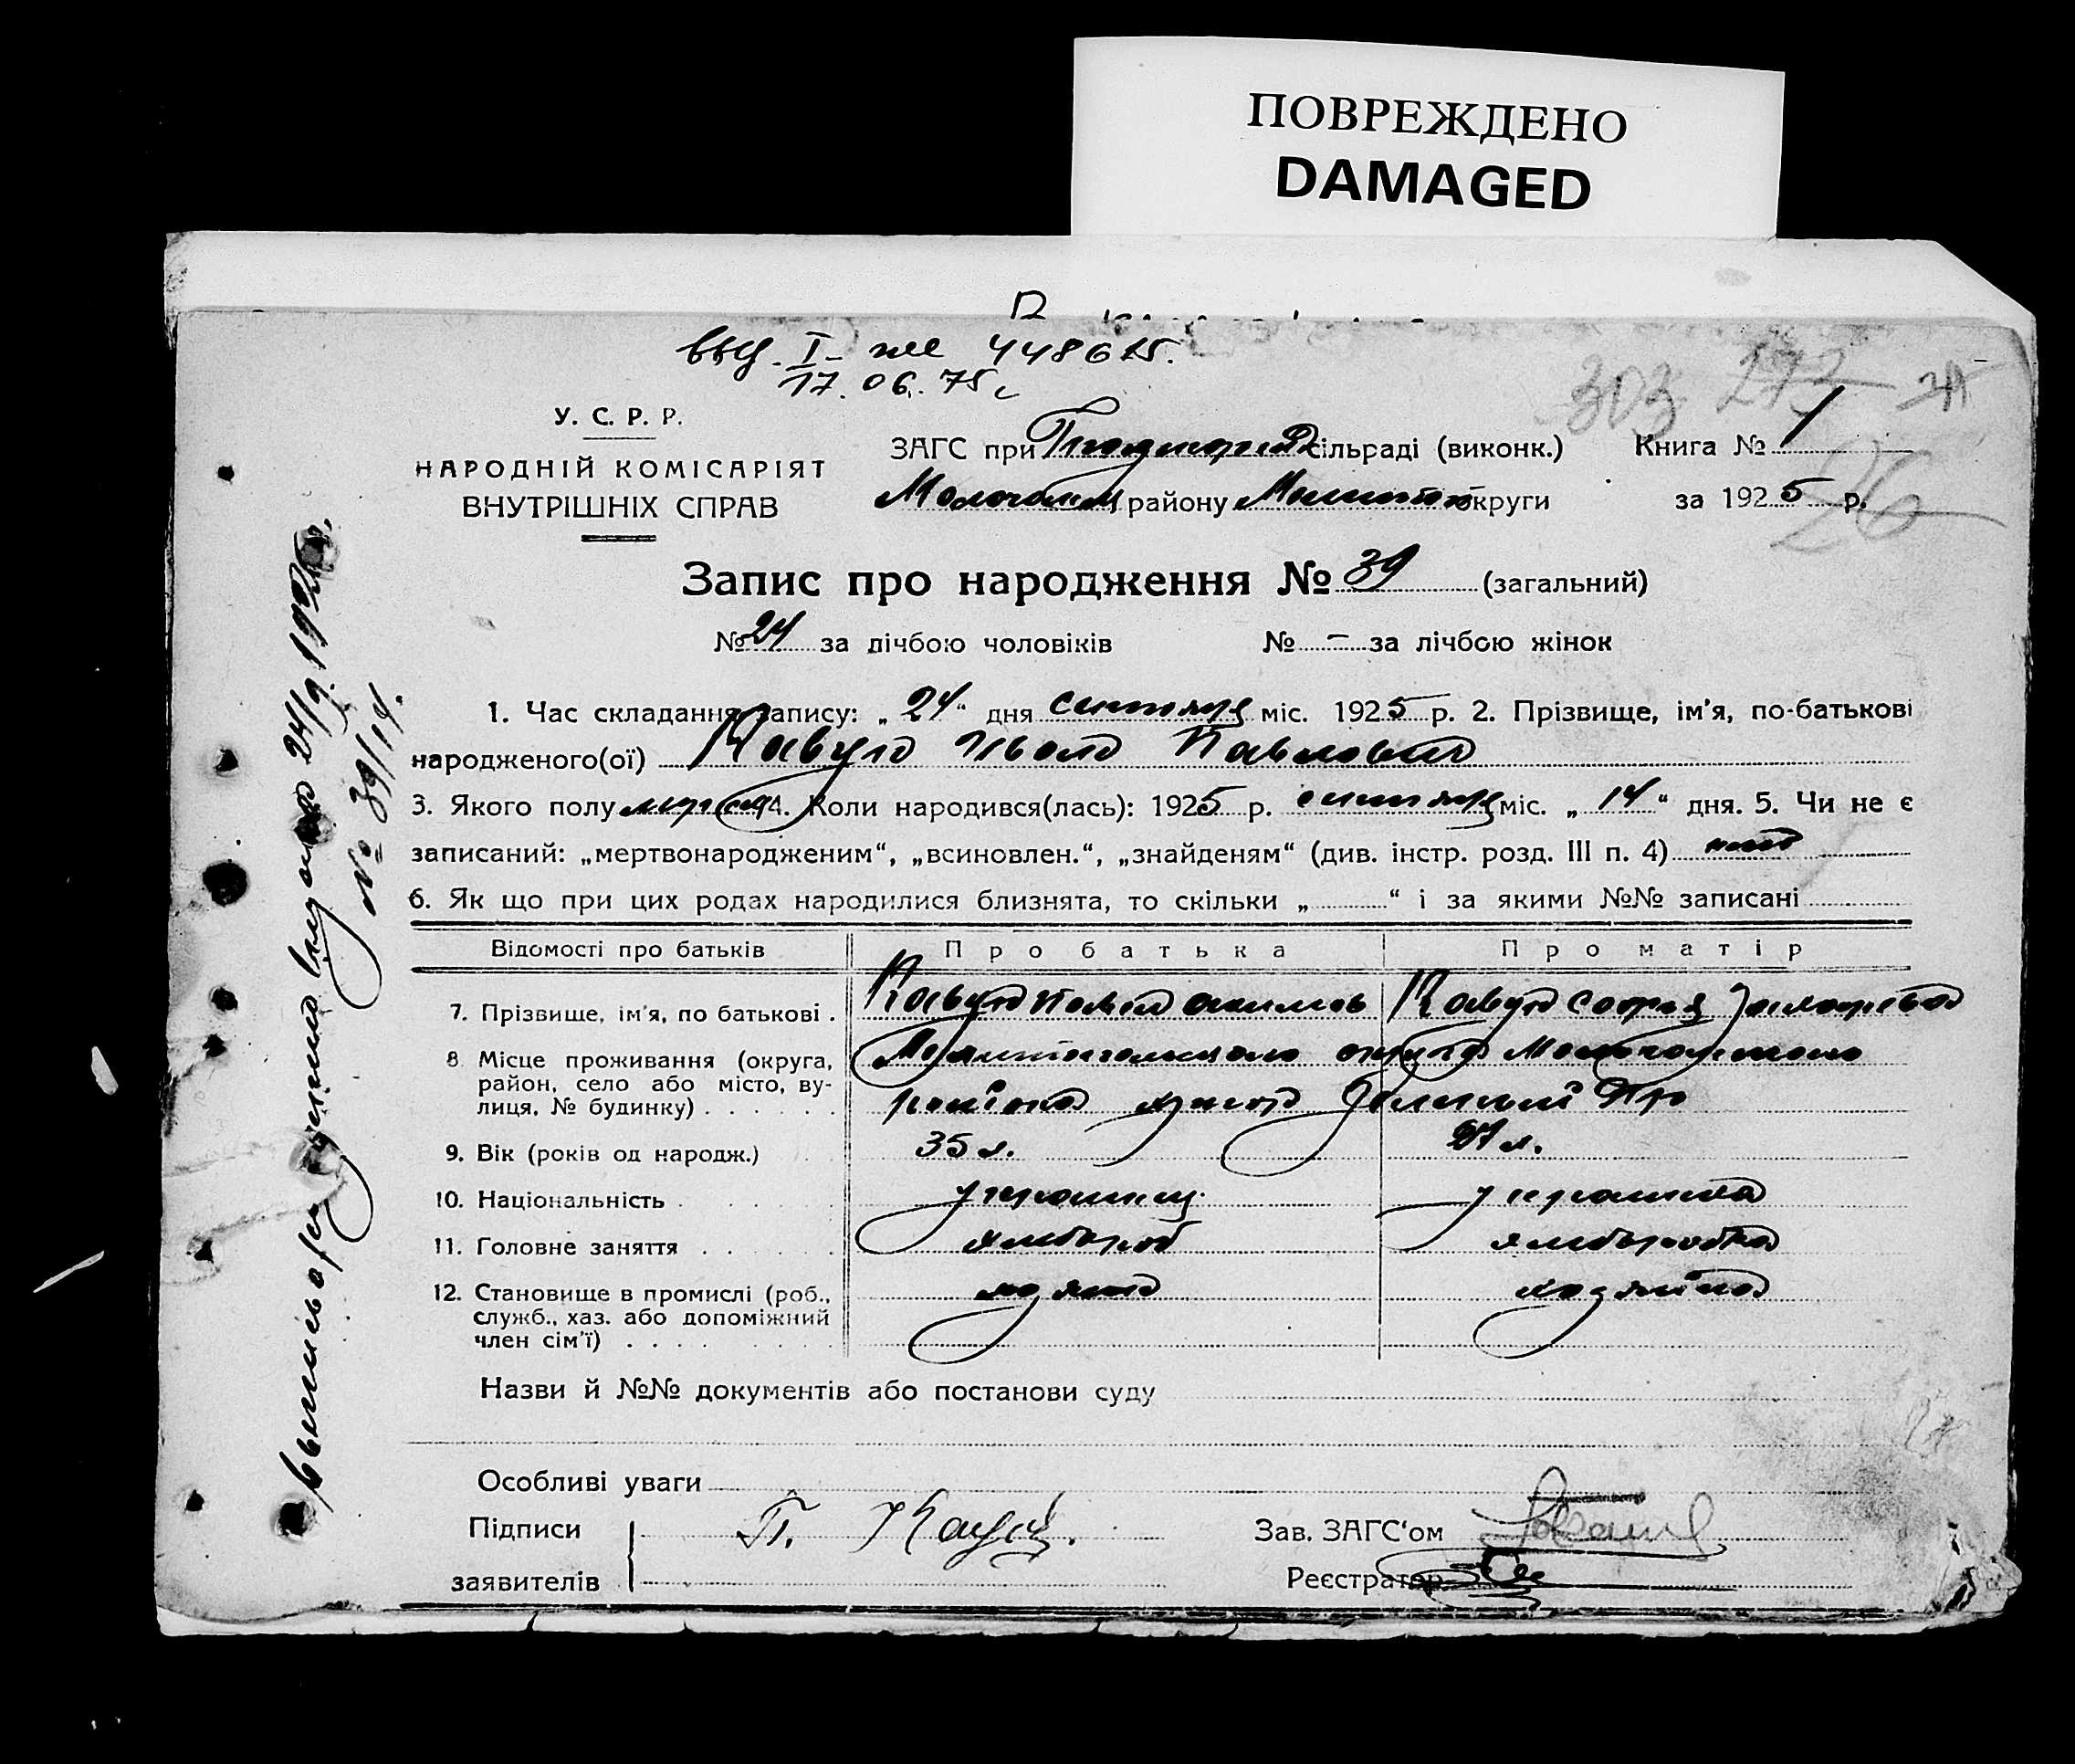 ПОВРЕЖДЕНО
DAMAGED
выд. I- же 448615.
17. 06. 75 г
303 273
У. С. Р. Р.
НАРОДНІЙ КОМІСАРІЯТ
ВНУТРІШНІХ СПРАВ
ЗАГС при сільраді (виконк.) Книга № 1
району округи за 1925 р.
26
Запис про народження № 39 (загальний)
№ 24 за лічбою чоловіків № – за лічбою жінок
1. Час складання запису: „ 24 “ дня сентября міс. 1925 р. 2. Прізвище, ім'я, по-батькові
народженого(ої) Кавун Иван Павлович
3. Якого полу мужск 4. Коли народився(лась): 1925 р. сентября міс. „ 14 “ дня. 5. Чи не є
записаний: „мертвонародженим“, „всиновлен.“, „знайденям“ (див. інстр. розд. III п. 4) нет
6. Як що при цих родах народилися близнята, то скільки „ “ і за якими №№ записані
Відомості про батьків Про батька Про матір
7. Прізвище, ім'я, по батькові . Кавун Павел Акимов Кавун
8. Місце проживання (округа, Мелитопольского округа Молочанского
район, село або місто, ву-
лиця, № будинку) . . . . . . района хутор
9. Вік (років од народж.) 35 л. 27 л.
10. Національність . украинец украинка
11. Головне заняття . . . . . . хлебороб хлеборобка
12. Становище в промислі (роб., хозяин хозяйка
служб., хаз. або допоміжний
член сім'ї) . . . .
Назви й №№ документів або постанови суду
Особливі уваги
Підписи П. Кавун. Зав. ЗАГС‘ом
заявителів Реєстратор
Выпись о рождении выдана 24/9. 1925 г.
№ 39/14.